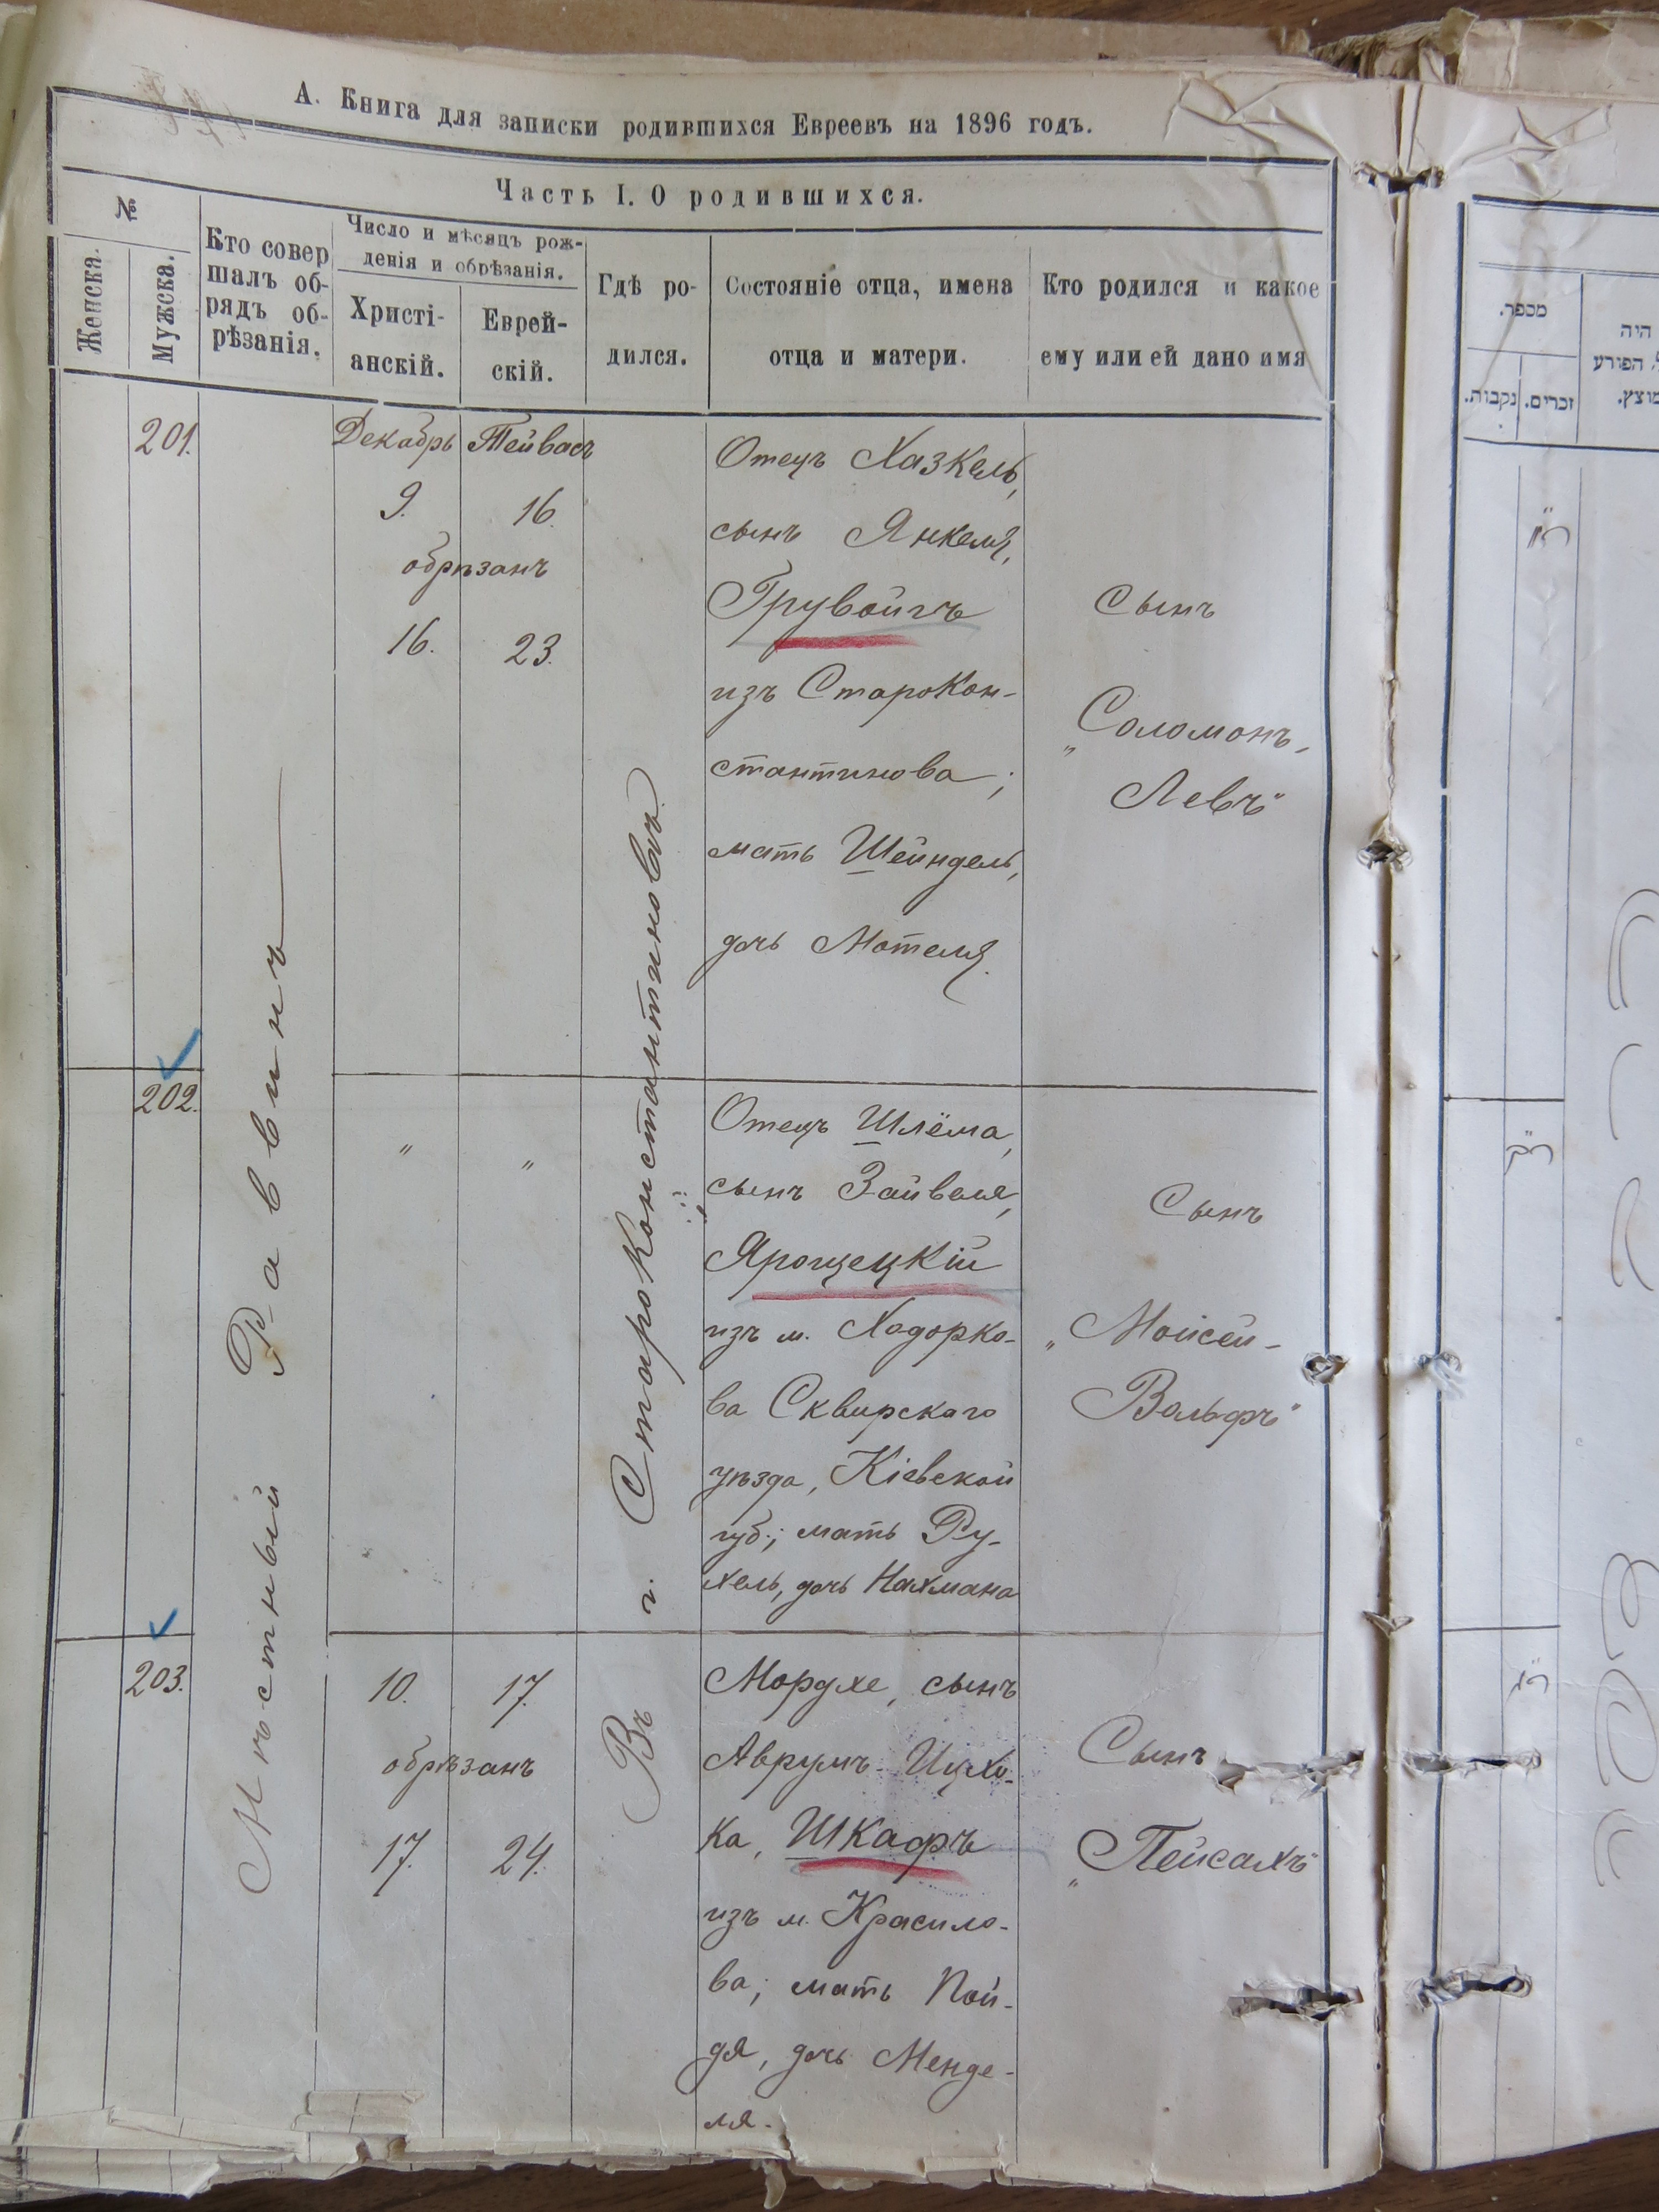 А. Книга для записки родившихся Евреевъ на 1896 годъ.
Часть I. О родившихся.
№
Женска.
Мужска.
Кто совер
шалъ об-
рядъ об-
рѣзанія.
Число и мѣсяцъ рож-
денія и обрѣзанія.
Христі-
анскій.
Еврей-
скій.
Гдѣ ро-
дился.
Состояніе отца, имена
отца и матери.
Кто родился и какое
ему или ей дано имя
Мѣстный Раввинъ
Въ г. Староконстантиновѣ
201.
Декабрь Тейвасъ
9. 16.
обрѣзанъ
16. 23.
Отецъ Хазкель,
сынъ Янкеля,
Грувойгъ
изъ Старокон-
стантинова;
мать Шейндель,
дочь Мотеля.
Сынъ
„Соломонъ-
Левъ“
202.
„ „
Отецъ Шлёма,
сынъ Зайвеля,
Ярощецкій
изъ м. Ходорко-
ва Сквирскаго
уѣзда, Кіевской
губ.; мать Ру-
хель, дочь Нахмана
Сынъ
„Мойсей-
Вольфъ“
203.
10. 17.
обрѣзанъ
17. 24.
Мордхе, сынъ
Аврумъ-Ицхо-
ка, Шкафъ
изъ м. Красило-
ва; мать Пой-
дя, дочь Менде-
ля.
Сынъ
„Пейсахъ“
מספר.
נקבות.
זכרים.
היה
הפורע
מוצץ.